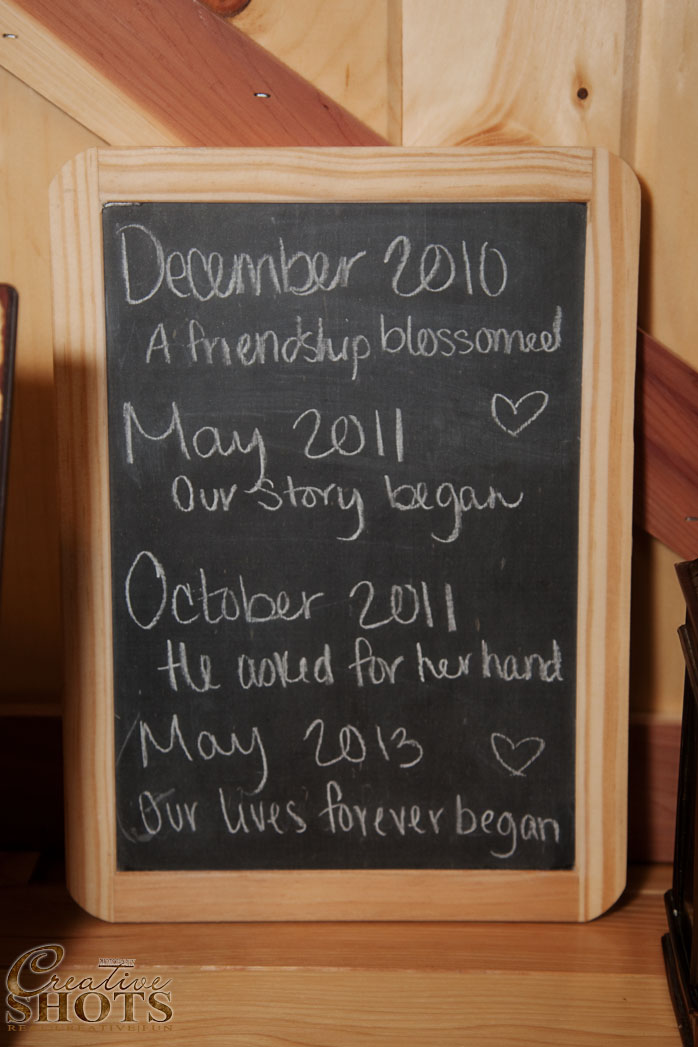 December 2010
A friendship blossomed
May 2011
Our story began
October 2011
He asked for her hand
May 2013
Our lives forever began
Creative
SHOTS